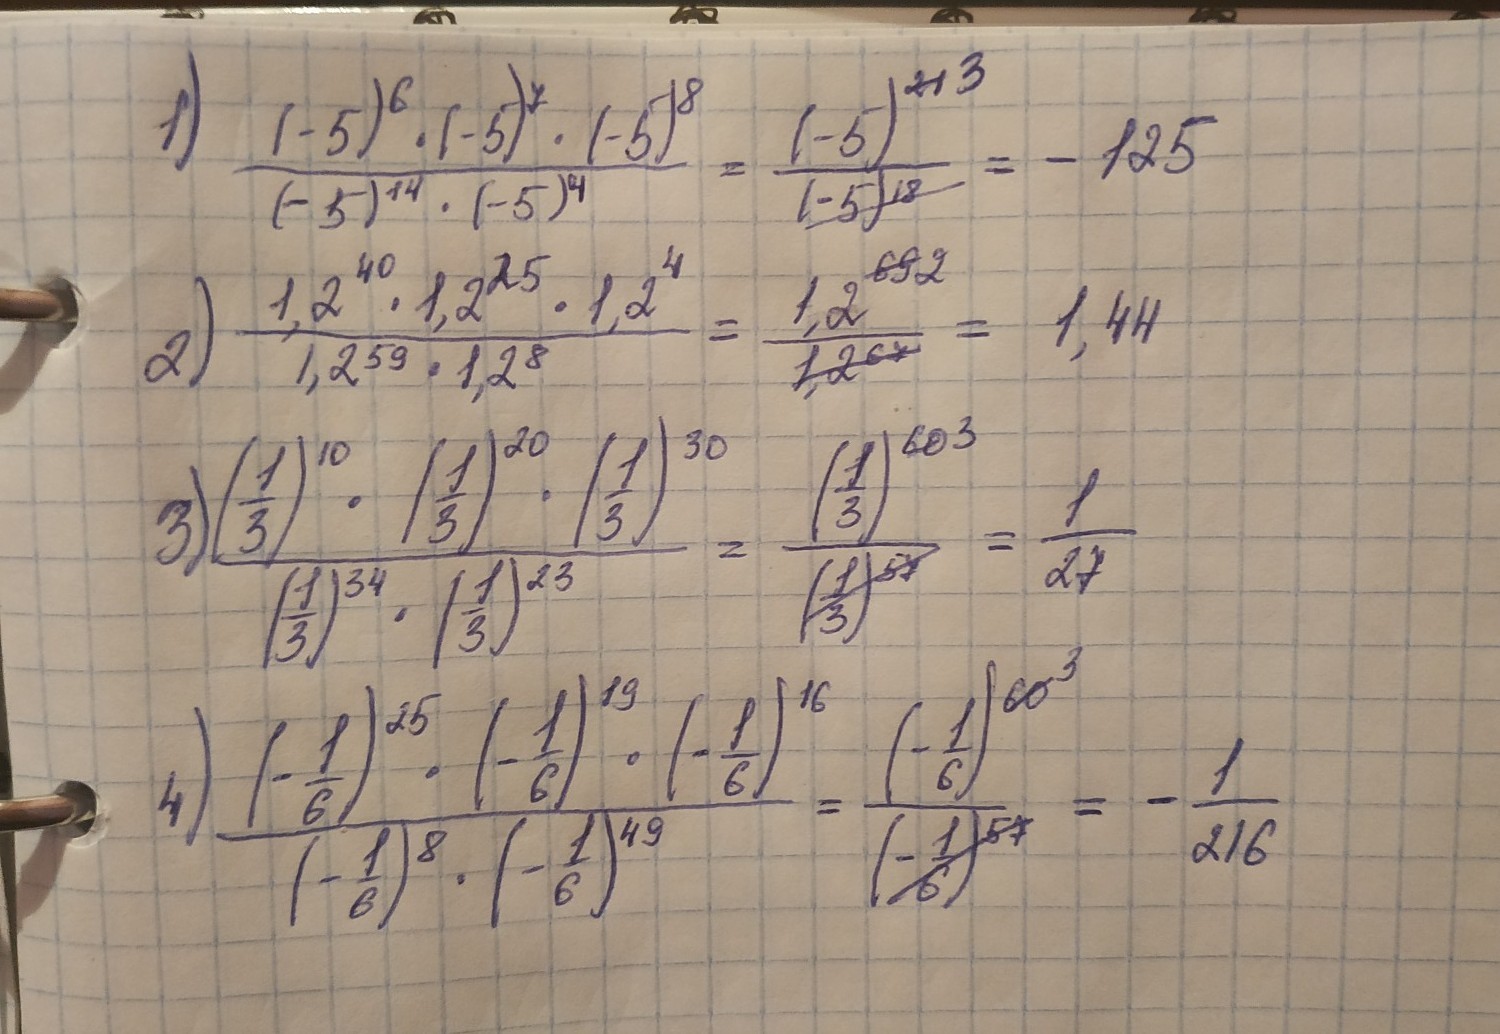 1) ((-5)^6 · (-5)^7 · (-5)^8) / ((-5)^14 · (-5)^4) = (-5)^21 3 / (-5)^18 = - 125
2) (1,2^40 · 1,2^25 · 1,2^4) / (1,2^59 · 1,2^8) = 1,2^69 2 / 1,2^67 = 1,44
3) ((1/3)^10 · (1/3)^20 · (1/3)^30) / ((1/3)^34 · (1/3)^23) = (1/3)^60 3 / (1/3)^57 = 1/27
4) ((-1/6)^25 · (-1/6)^19 · (-1/6)^16) / ((-1/6)^8 · (-1/6)^49) = (-1/6)^60 3 / (-1/6)^57 = - 1/216